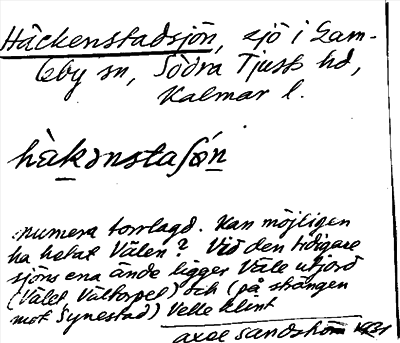 Häckenstadsjön, sjö i Gam-
leby sn, Södra Tjusts hd,
Kalmar l.
hàkǝnstaʃǿn
numera torrlagd. Kan möjligen
ha hetat Välen? Vid den tidigare
sjöns ena ände ligger Väle utjord
(Välet Vältorpet) och (på strängen
mot Synestad) Velle klint
Axel Sandström 1921